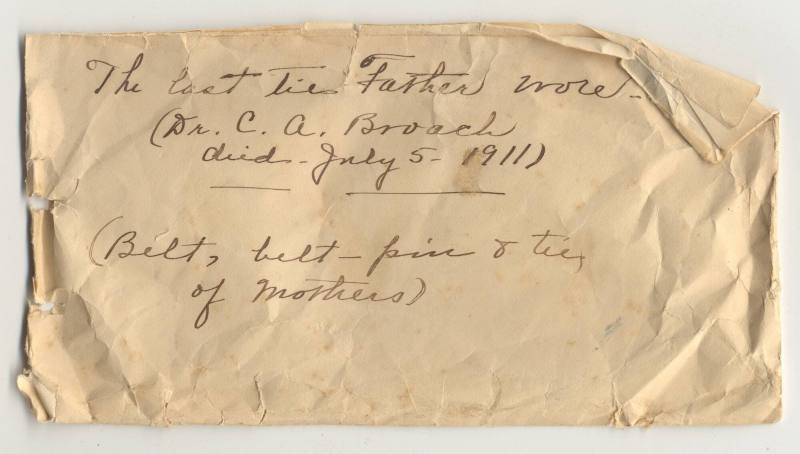 The last tie Father wore-
(Dr. C. A. Broach
died - July 5 - 1911)
(Belt, belt-pin & tie,
of Mothers)